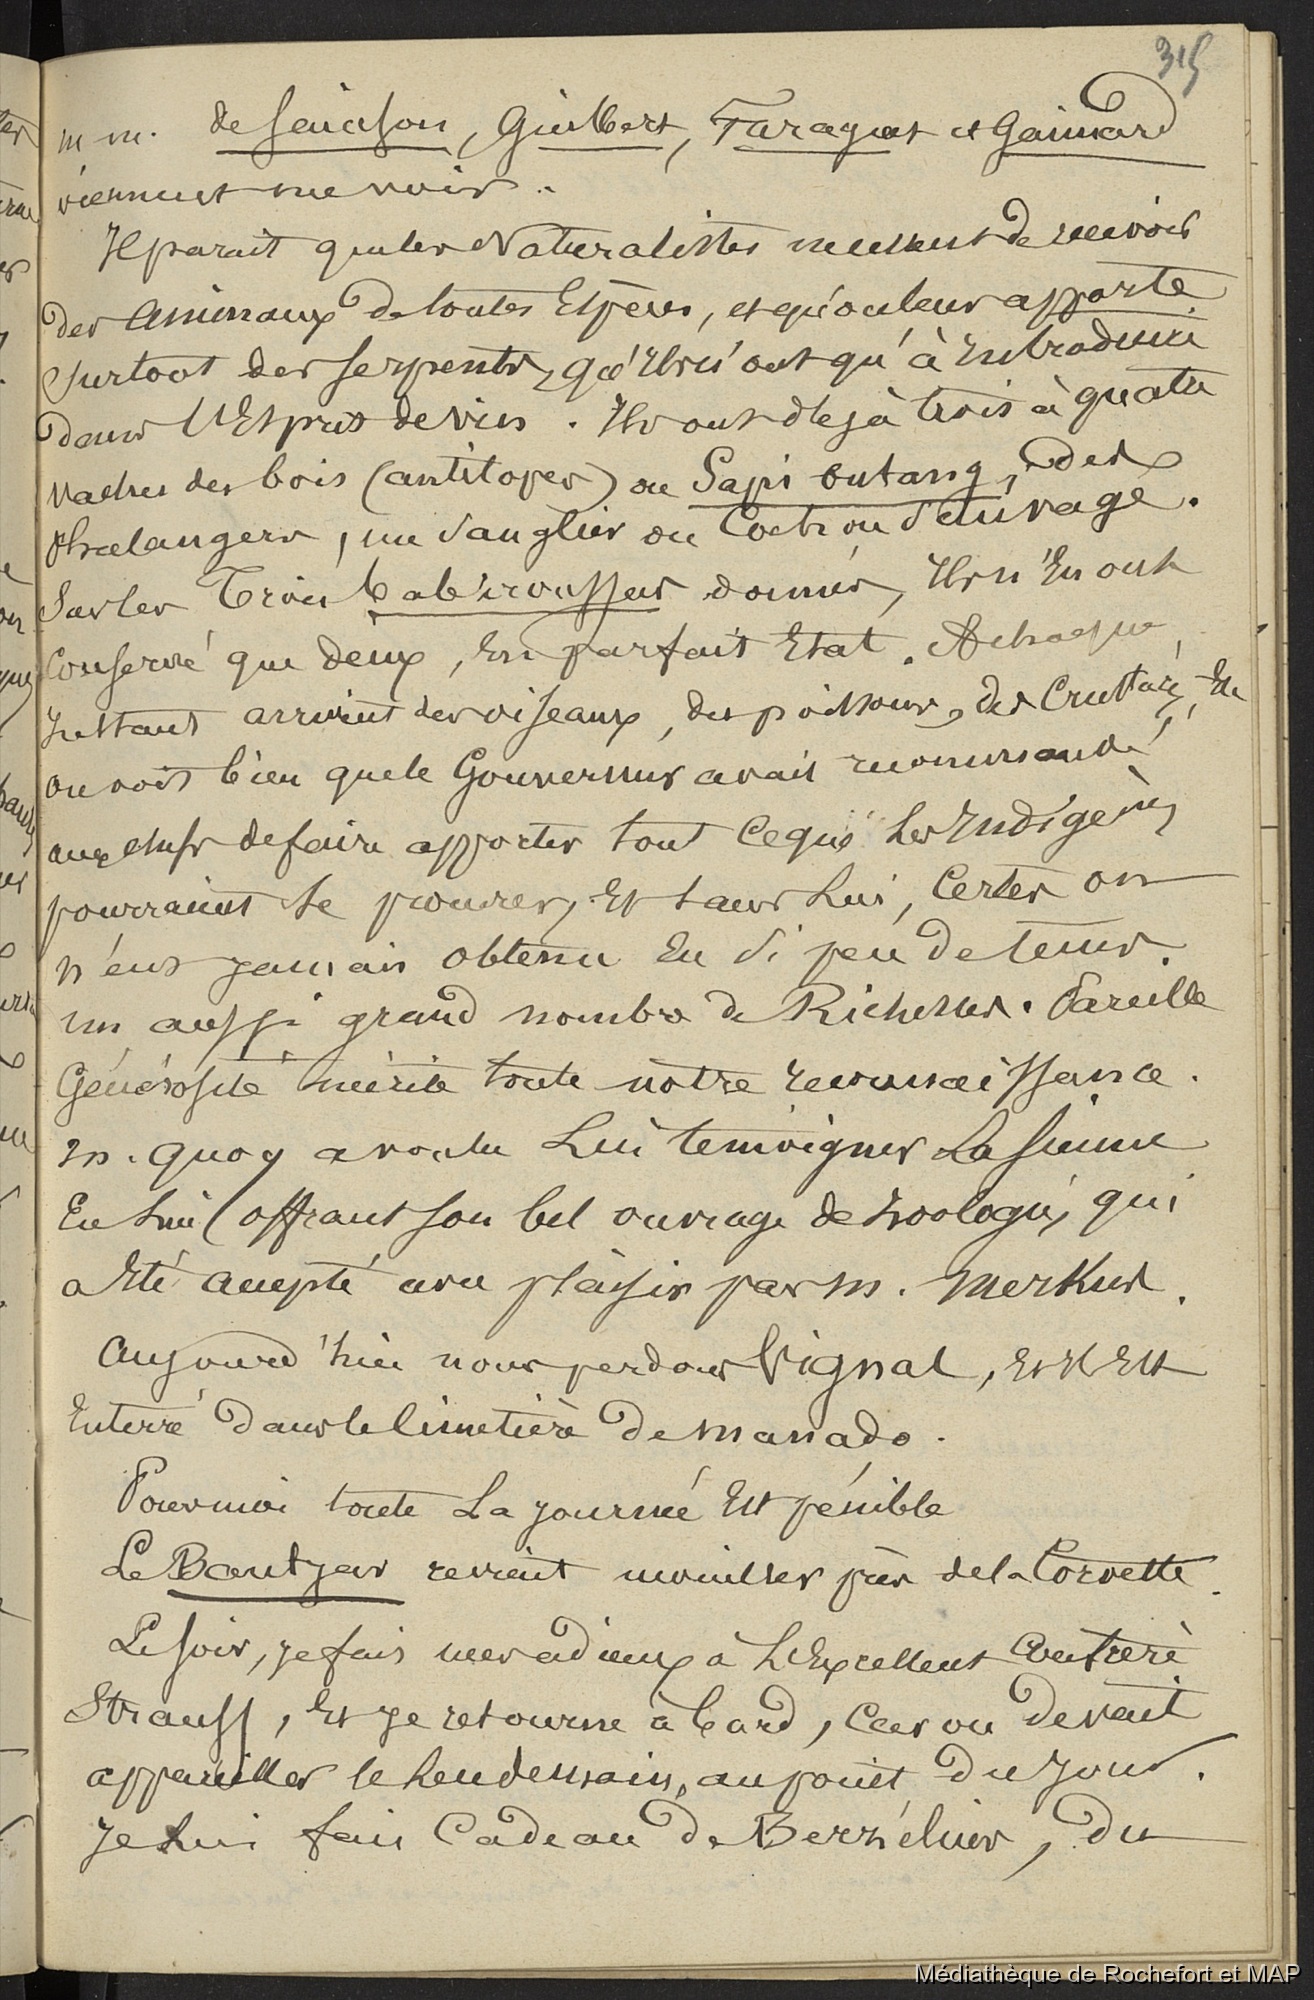 315
m m. de Sainson, Guilbert, Faraguet et Gaimard
viennent me voir.
Il parait que les Naturalistes ne cessent de recevoir
des animaux de toutes Espèces, et qu'on leur apporte
surtout des serpents, qu'Ils n'ont qu'à Introduire
dans l'Esprit de vin. Ils ont déjà trois à quatre
vaches des bois (antilopes) ou Sapi outang, des
Phalangers, un sanglier ou Cochon sauvage.
Sur les Trois babiroussas donnés, Ils n'En ont
Conservé que deux, En parfait Etat. A chaque
Instant arrivent des oiseaux, des poissons, des Crustacés, Et
on voit bien que le Gouverneur avait recommandé
aux chefs de faire apporter tout ce que les Indigènes
pourraient se procurer, Et sans Lui, Certes on
n'eut jamais obtenu En si peu de tems
un aussi grand nombre de Richesses. Pareille
Générosité mérite toute notre reconnaissance.
M. Quoy a voulu Lui témoigner La sienne
En lui offrant son bel ouvrage de zoologie, qui
a Eté accepté avec plaisir par M. Merkus.
Aujourd'hui nous perdons Vignal, Et Il Est
Enterré dans le Cimetière de Manado.
Pour moi toute La journée Est pénible
Le Bantjar revient mouiller près de la Corvette.
Le soir, je fais mes adieux à L'Excellent Confrère
Strauss, Et je retourne à bord, Car on devait
appareiller le Lendemain, au point du jour.
Je Lui fais Cadeau de Berzélius, du
Médiathèque de Rochefort et MAP